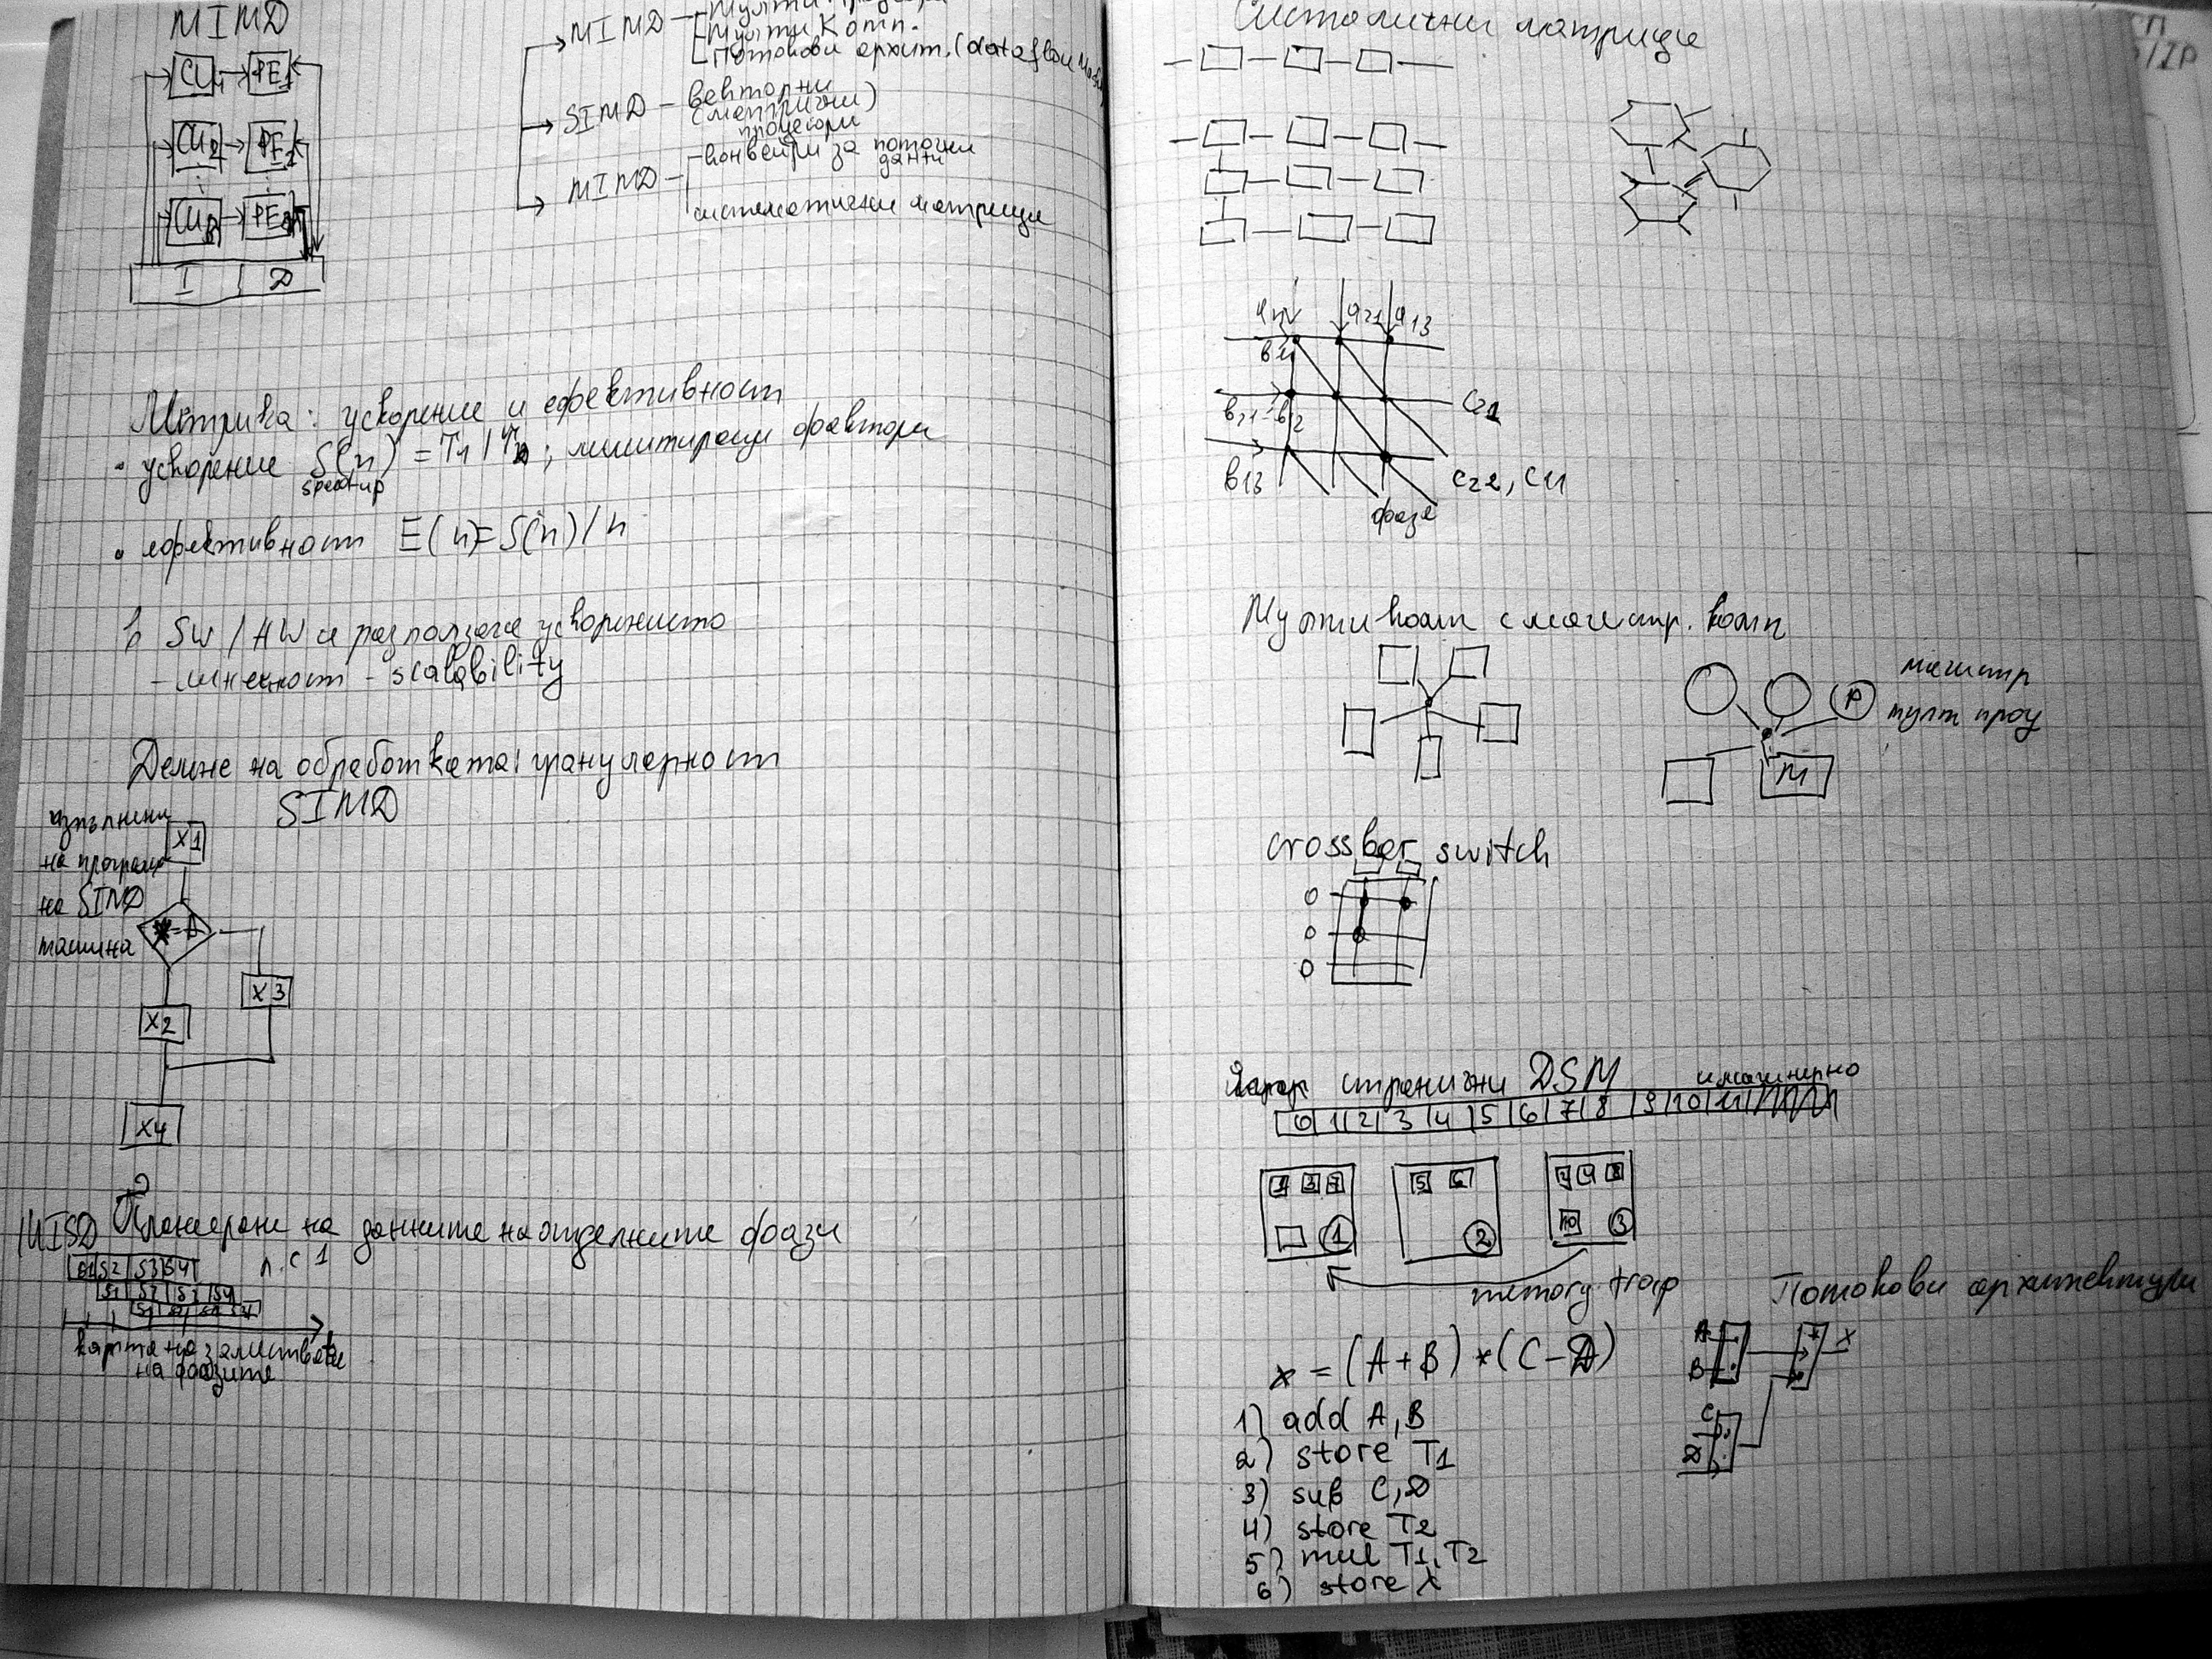 MIMD
CU1 PE1
CU2 PE2
CUn PEn
I D
MIMD
Мулти Комп.
Потокови архит. (dataflow
SIMD - векторни
(матрични)
процесори
MIMD - конвейри за поточни
данни
систематични матрици
Метрика: ускорение и ефективност
• ускорение S(n) = T1 / Tn ; лимитиращи фактори
speed-up
• ефективност E(n)=S(n)/n
в SW / HW и разползага ускорението
- линейност - scalability
Делене на обработката: гранулярност
SIMD
изпълнение
на програма
на SIMD
машина
X1
X3
X2
X4
MISD Планиране на данните на отделните фази
S1 S2 S3 S4
л.с 1
S1 S2 S3 S4
S1 S2 S3 S4
t
карта на заместване
на фазите
Систолични матрици
a11 a21 a13
в11
в21 в12 c21
в13 c22, c11
фаза
Мултикомп с магистр. комп
P
магистр
мулт проц
M
crossbar switch
странични DSM имагинерно
0 1 2 3 4 5 6 7 8 9 10 11
5 6
10
1 2 3
memory trap
Потокови архитектури
x = (A+B)*(C-D)
A
B
*
X
C
D
1) add A, B
2) store T1
3) sub C, D
4) store T2
5) mul T1, T2
6) store X